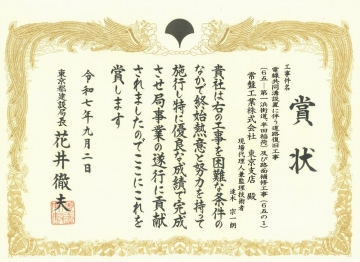 賞状
工事件名
電線共同溝設置に伴う道路復旧工事
(65-第一浜街道、半田稲荷)及び路面補修工事(65の1)
常盤工業株式会社 東京支店 殿
現場代理人兼監理技術者
速水 宗一朗
貴社は右の工事を困難な条件の
なかで終始熱意と努力を持って
施行し特に優良な成績で完成
させ局事業の遂行に貢献
されましたのでここにこれを
賞します
令和七年九月二日
東京都建設局長 花井徹夫